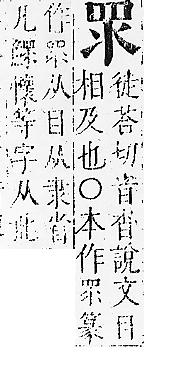 眔
徒荅切音沓說文目
相及也○本作眔篆
作眔从目从隶省
凡鰥懷等字从此